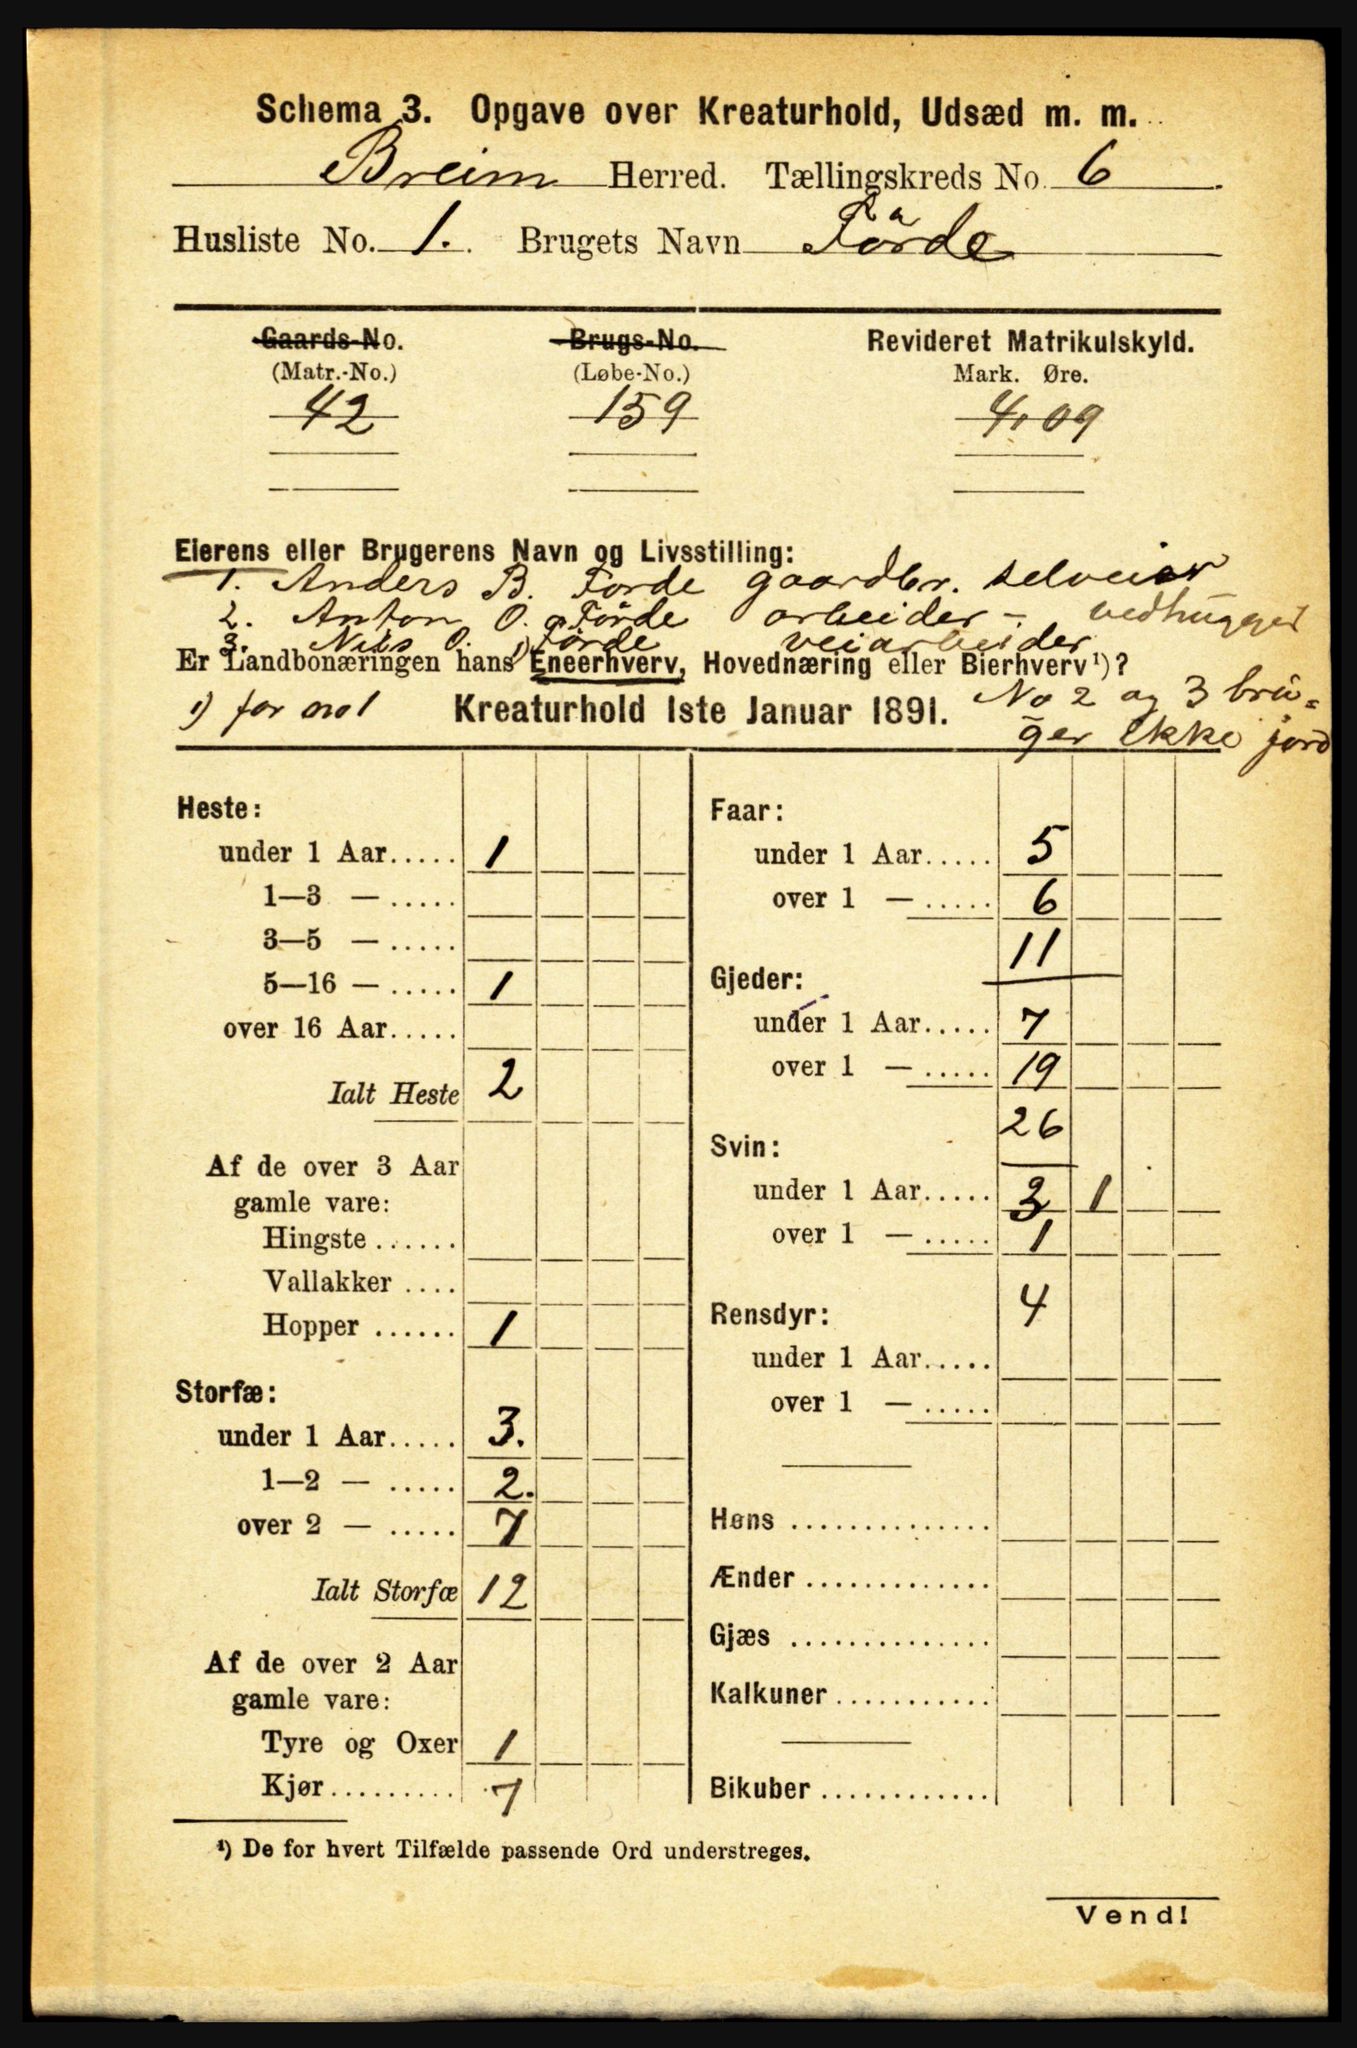 Schema 3. Opgave over Kreaturhold, Udsæd m. m.
Breim Herred. Tællingskreds No. 6
Husliste No. 1. Brugets Navn Förde
Gaards-No. Brugs-No. Revideret Matrikulskyld.
(Matr.-No.) (Løbe-No.) Mark. Øre.
42 159 4,09
Eierens eller Brugerens Navn og Livsstilling:
1. Anders B. Förde gaardbr. selveier
2. Anton O. Förde arbeider - vedhugger
3. Nils O. Förde veiarbeider
Er Landbonæringen hans ¹) Eneerhverv, Hovednæring eller Bierhverv¹)?
1) for no 1 Kreaturhold 1ste Januar 1891. No 2 og 3 bru=
ger ikke jord
Heste:
under 1 Aar..... 1
1—3 — .....
3—5 — .....
5—16 — ..... 1
over 16 Aar.....
Ialt Heste 2
Af de over 3 Aar
gamle vare:
Hingste ......
Vallakker ....
Hopper ...... 1
Storfæ:
under 1 Aar..... 3.
1—2 — ..... 2.
over 2 — ..... 7
Ialt Storfæ 12
Af de over 2 Aar
gamle vare:
Tyre og Oxer 1
Kjør.......... 7
Faar:
under 1 Aar..... 5
over 1 — ..... 6
11
Gjeder:
under 1 Aar..... 7
over 1 — ..... 19
26
Svin:
under 1 Aar..... 3 1
over 1 — ..... 1
4
Rensdyr:
under 1 Aar.....
over 1 — .....
Høns ...............
Ænder .............
Gjæs ...............
Kalkuner ...........
Bikuber .............
¹) De for hvert Tilfælde passende Ord understreges.
Vend!